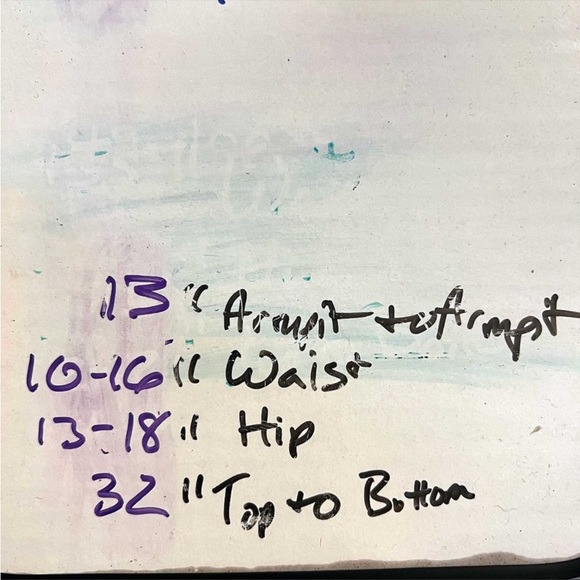 13" Armpit to Armpit
10-16" Waist
13-18" Hip
32" Top to Bottom